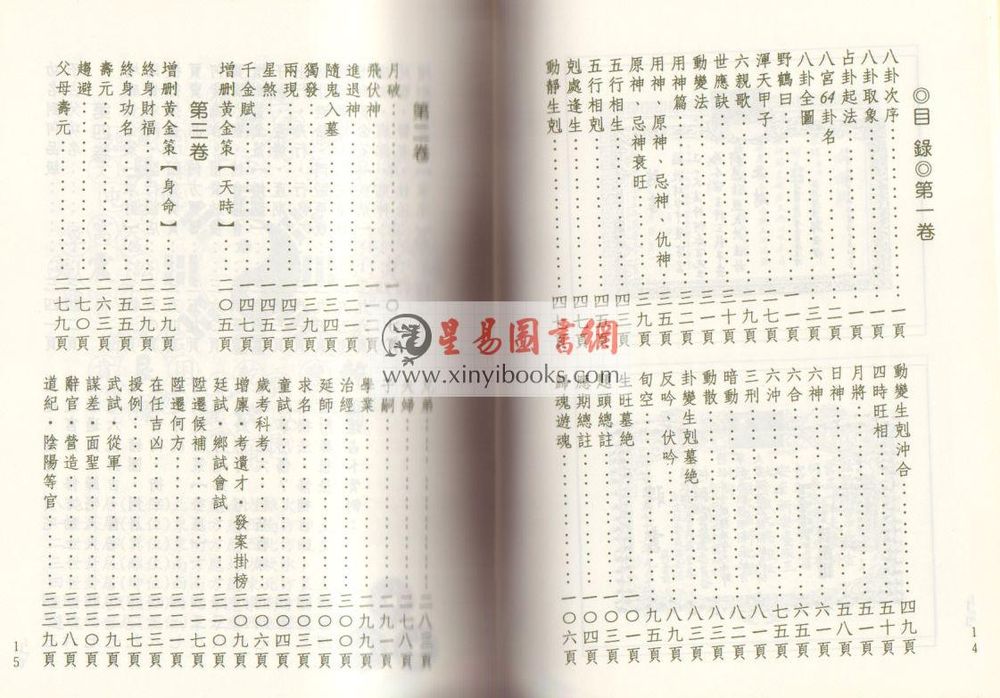 ◎目錄◎第一卷
八卦次序⋯⋯一頁
八卦取象⋯⋯一頁
占卦起法⋯⋯一頁
八宮64卦名⋯⋯二頁
八卦全圖⋯⋯三頁
野鶴曰⋯⋯一一頁
渾天甲子⋯⋯一七頁
六親歌⋯⋯一九頁
世應訣⋯⋯二九頁
動變法⋯⋯三十頁
用神篇⋯⋯三二頁
用神、原神、忌神 仇神⋯⋯三五頁
原神、忌神衰旺⋯⋯三九頁
五行相生⋯⋯四三頁
五行相剋⋯⋯四五頁
剋處逢生⋯⋯四七頁
動靜生剋⋯⋯四七頁
動變生剋沖合⋯⋯四九頁
四時旺相⋯⋯五十頁
月將⋯⋯五一頁
日神⋯⋯五八頁
六神⋯⋯
六合⋯⋯
六沖⋯⋯
三刑⋯⋯
暗動⋯⋯
動散⋯⋯
卦變生剋墓絕⋯⋯
反吟、伏吟⋯⋯
旬空⋯⋯
生旺墓絕⋯⋯一〇一頁
頭總註⋯⋯一〇三頁
期總註⋯⋯一〇四頁
歸魂遊魂⋯⋯一〇六頁
14
第二卷
月破⋯⋯
飛伏神⋯⋯一一二頁
進退神⋯⋯一二一頁
隨鬼入墓⋯⋯一三四頁
獨發⋯⋯一三九頁
兩現⋯⋯一四三頁
星煞⋯⋯一四五頁
千金賦⋯⋯一四七頁
增刪黃金策【天時】⋯⋯二〇五頁
第三卷
增刪黃金策【身命】⋯⋯二三九頁
終身財福⋯⋯二三九頁
終身功名⋯⋯二五五頁
壽元⋯⋯二六三頁
趨避⋯⋯二七〇頁
父母壽元⋯⋯二七九頁
學業⋯⋯二九九頁
治經⋯⋯三〇〇頁
延師⋯⋯
求名⋯⋯
童試⋯⋯三〇四頁
歲考科考⋯⋯三〇六頁
增廩・考遺才・發案掛榜⋯⋯
廷試・鄉試會試⋯⋯
陞遷候補⋯⋯三一七頁
陞遷何方⋯⋯
在任吉凶⋯⋯
援例⋯⋯
武試・從軍⋯⋯三二九頁
謀差・面聖⋯⋯三三〇頁
辭官・營造⋯⋯三三八頁
道紀・陰陽等官⋯⋯三三九頁
15
星易圖書網
www.xinyibooks.com